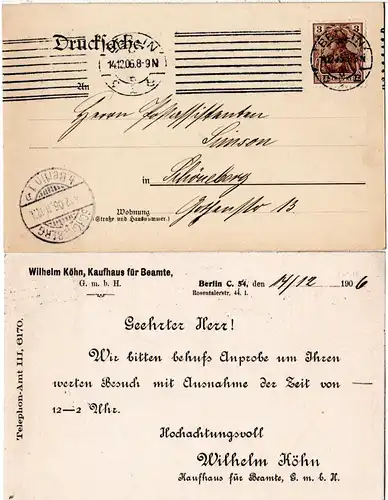 Drucksache.
BERLIN
14.12.06.8-9N
3
An
Herrn Postassistenten
Simson
in Schöneberg
Wohnung Gotenstr 13.
(Straße und Hausnummer.)
SCHÖNEBERG
b. Berlin 1
Wilhelm Köhn, Kaufhaus für Beamte,
G. m. b. H.
Berlin C. 54, den 14/12 1906
Rosentalerstr. 44. I.
Telephon-Amt III, 6170.
Geehrter Herr!
Wir bitten behufs Anprobe um Ihren
werten Besuch mit Ausnahme der Zeit von
12—2 Uhr.
Hochachtungsvoll
Wilhelm Köhn
Kaufhaus für Beamte, G. m. b. H.